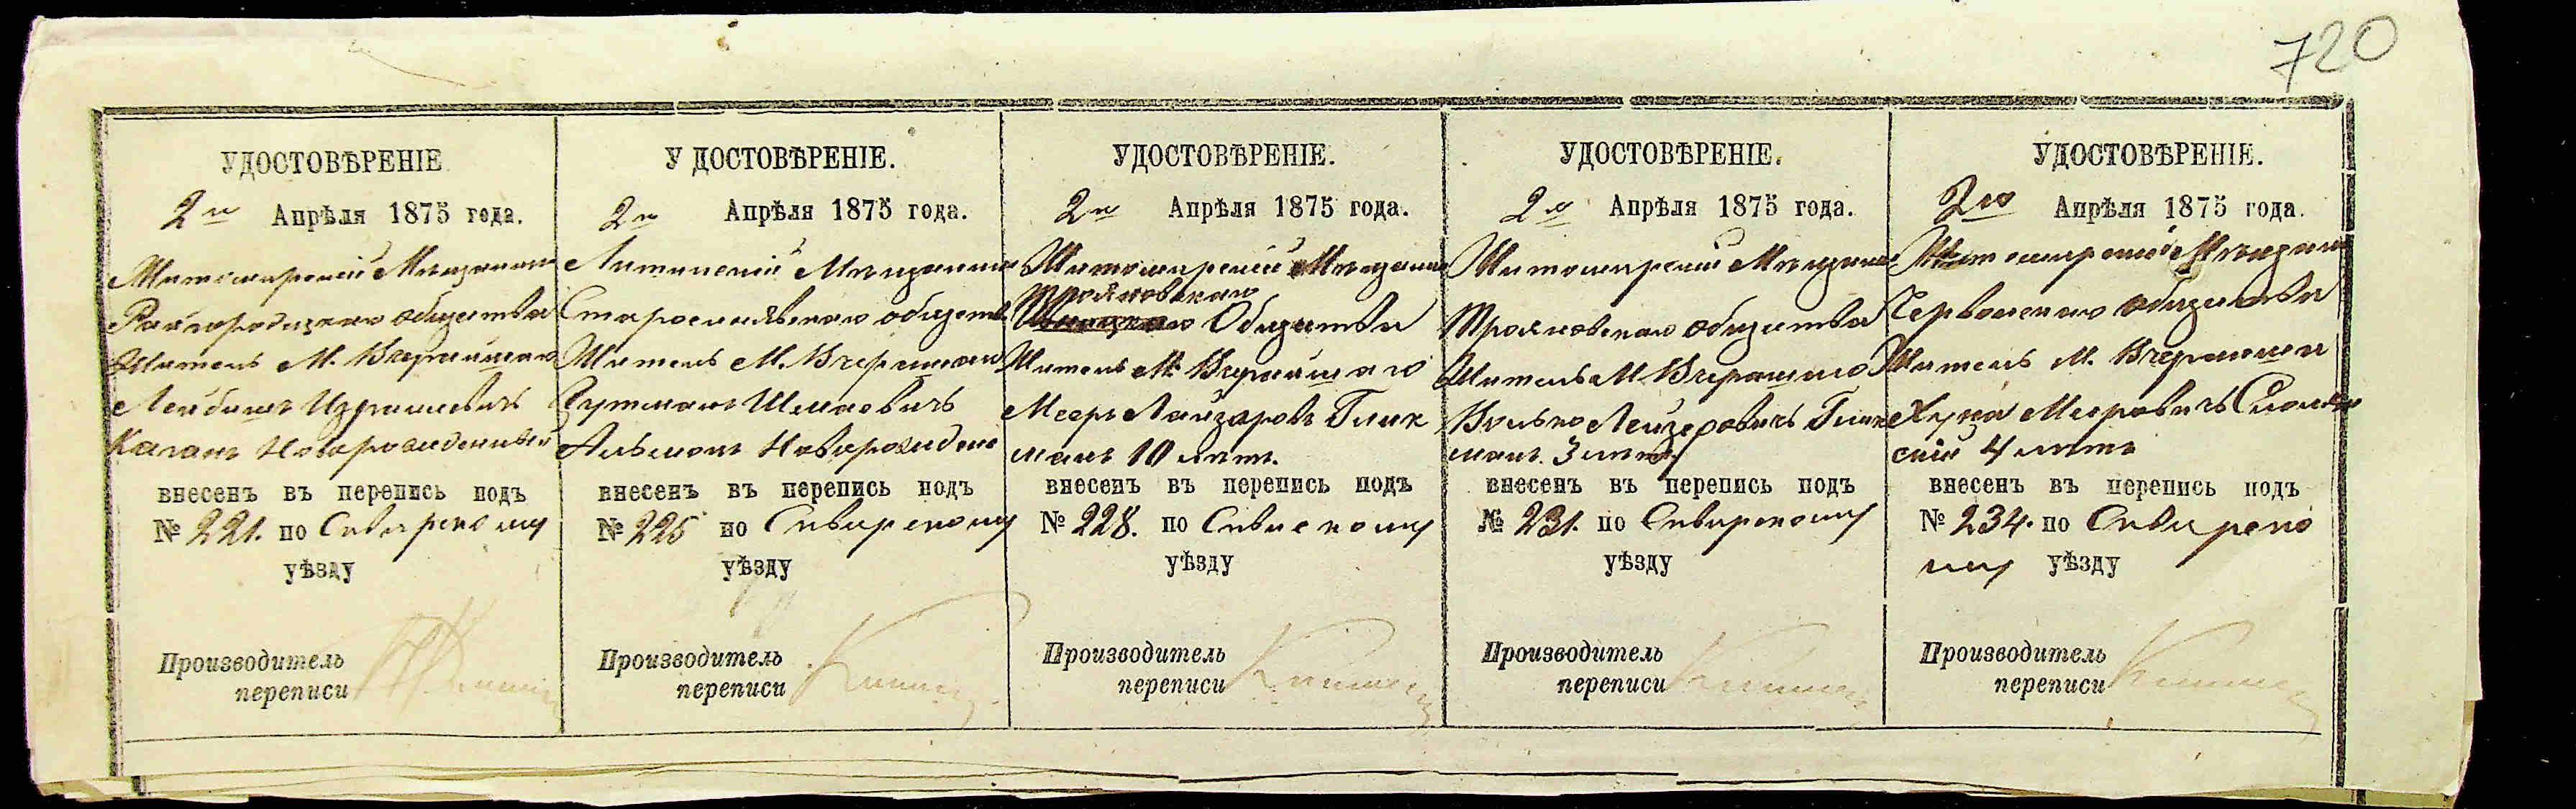 720
УДОСТОВѢРЕНІЕ
2го Апрѣля 1875 года.
Житомирскій Мѣщанинъ
Райгородцкаго общества
Житель М. Вчерайшаго
Лейбишъ Израилевичъ
Каганъ Новорожденный
внесенъ въ перепись подъ
№ 221. по Сквирскому
уѣзду
Производитель
переписи
УДОСТОВѢРЕНІЕ.
2го Апрѣля 1875 года.
Литинскій Мѣщанинъ
Старосинявскаго общества
Житель М. Вчерайшаго
Шмаевичъ
Новорожден
внесенъ въ перепись подъ
№ 225 по Сквирскому
уѣзду
Производитель
переписи
УДОСТОВѢРЕНІЕ.
2го Апрѣля 1875 года.
Житомирскій Мѣщанинъ
Трояновскаго
Общества
Житель М. Вчерайшаго
Мееръ Лайзеровъ Глик
манъ 10 лѣтъ.
внесенъ въ перепись подъ
№ 228. по Сквискому
уѣзду
Производитель
переписи
УДОСТОВѢРЕНІЕ.
2го Апрѣля 1875 года.
Житомирскій Мѣщанинъ
Трояновскаго общества
Житель М. Вчерашего
Волько Лейзеровичъ Глик
манъ. 3 лѣтъ
внесенъ въ перепись подъ
№ 231. по Сквирскому
уѣзду
Производитель
переписи
УДОСТОВѢРЕНІЕ.
2го Апрѣля 1875 года.
Житомирскій Мѣщанинъ
Червонскаго общества
Житель М. Вчерайшаго
Меровичъ
скій 4 лѣтъ
внесенъ въ перепись подъ
№ 234. по Сквирско
му уѣзду
Производитель
переписи